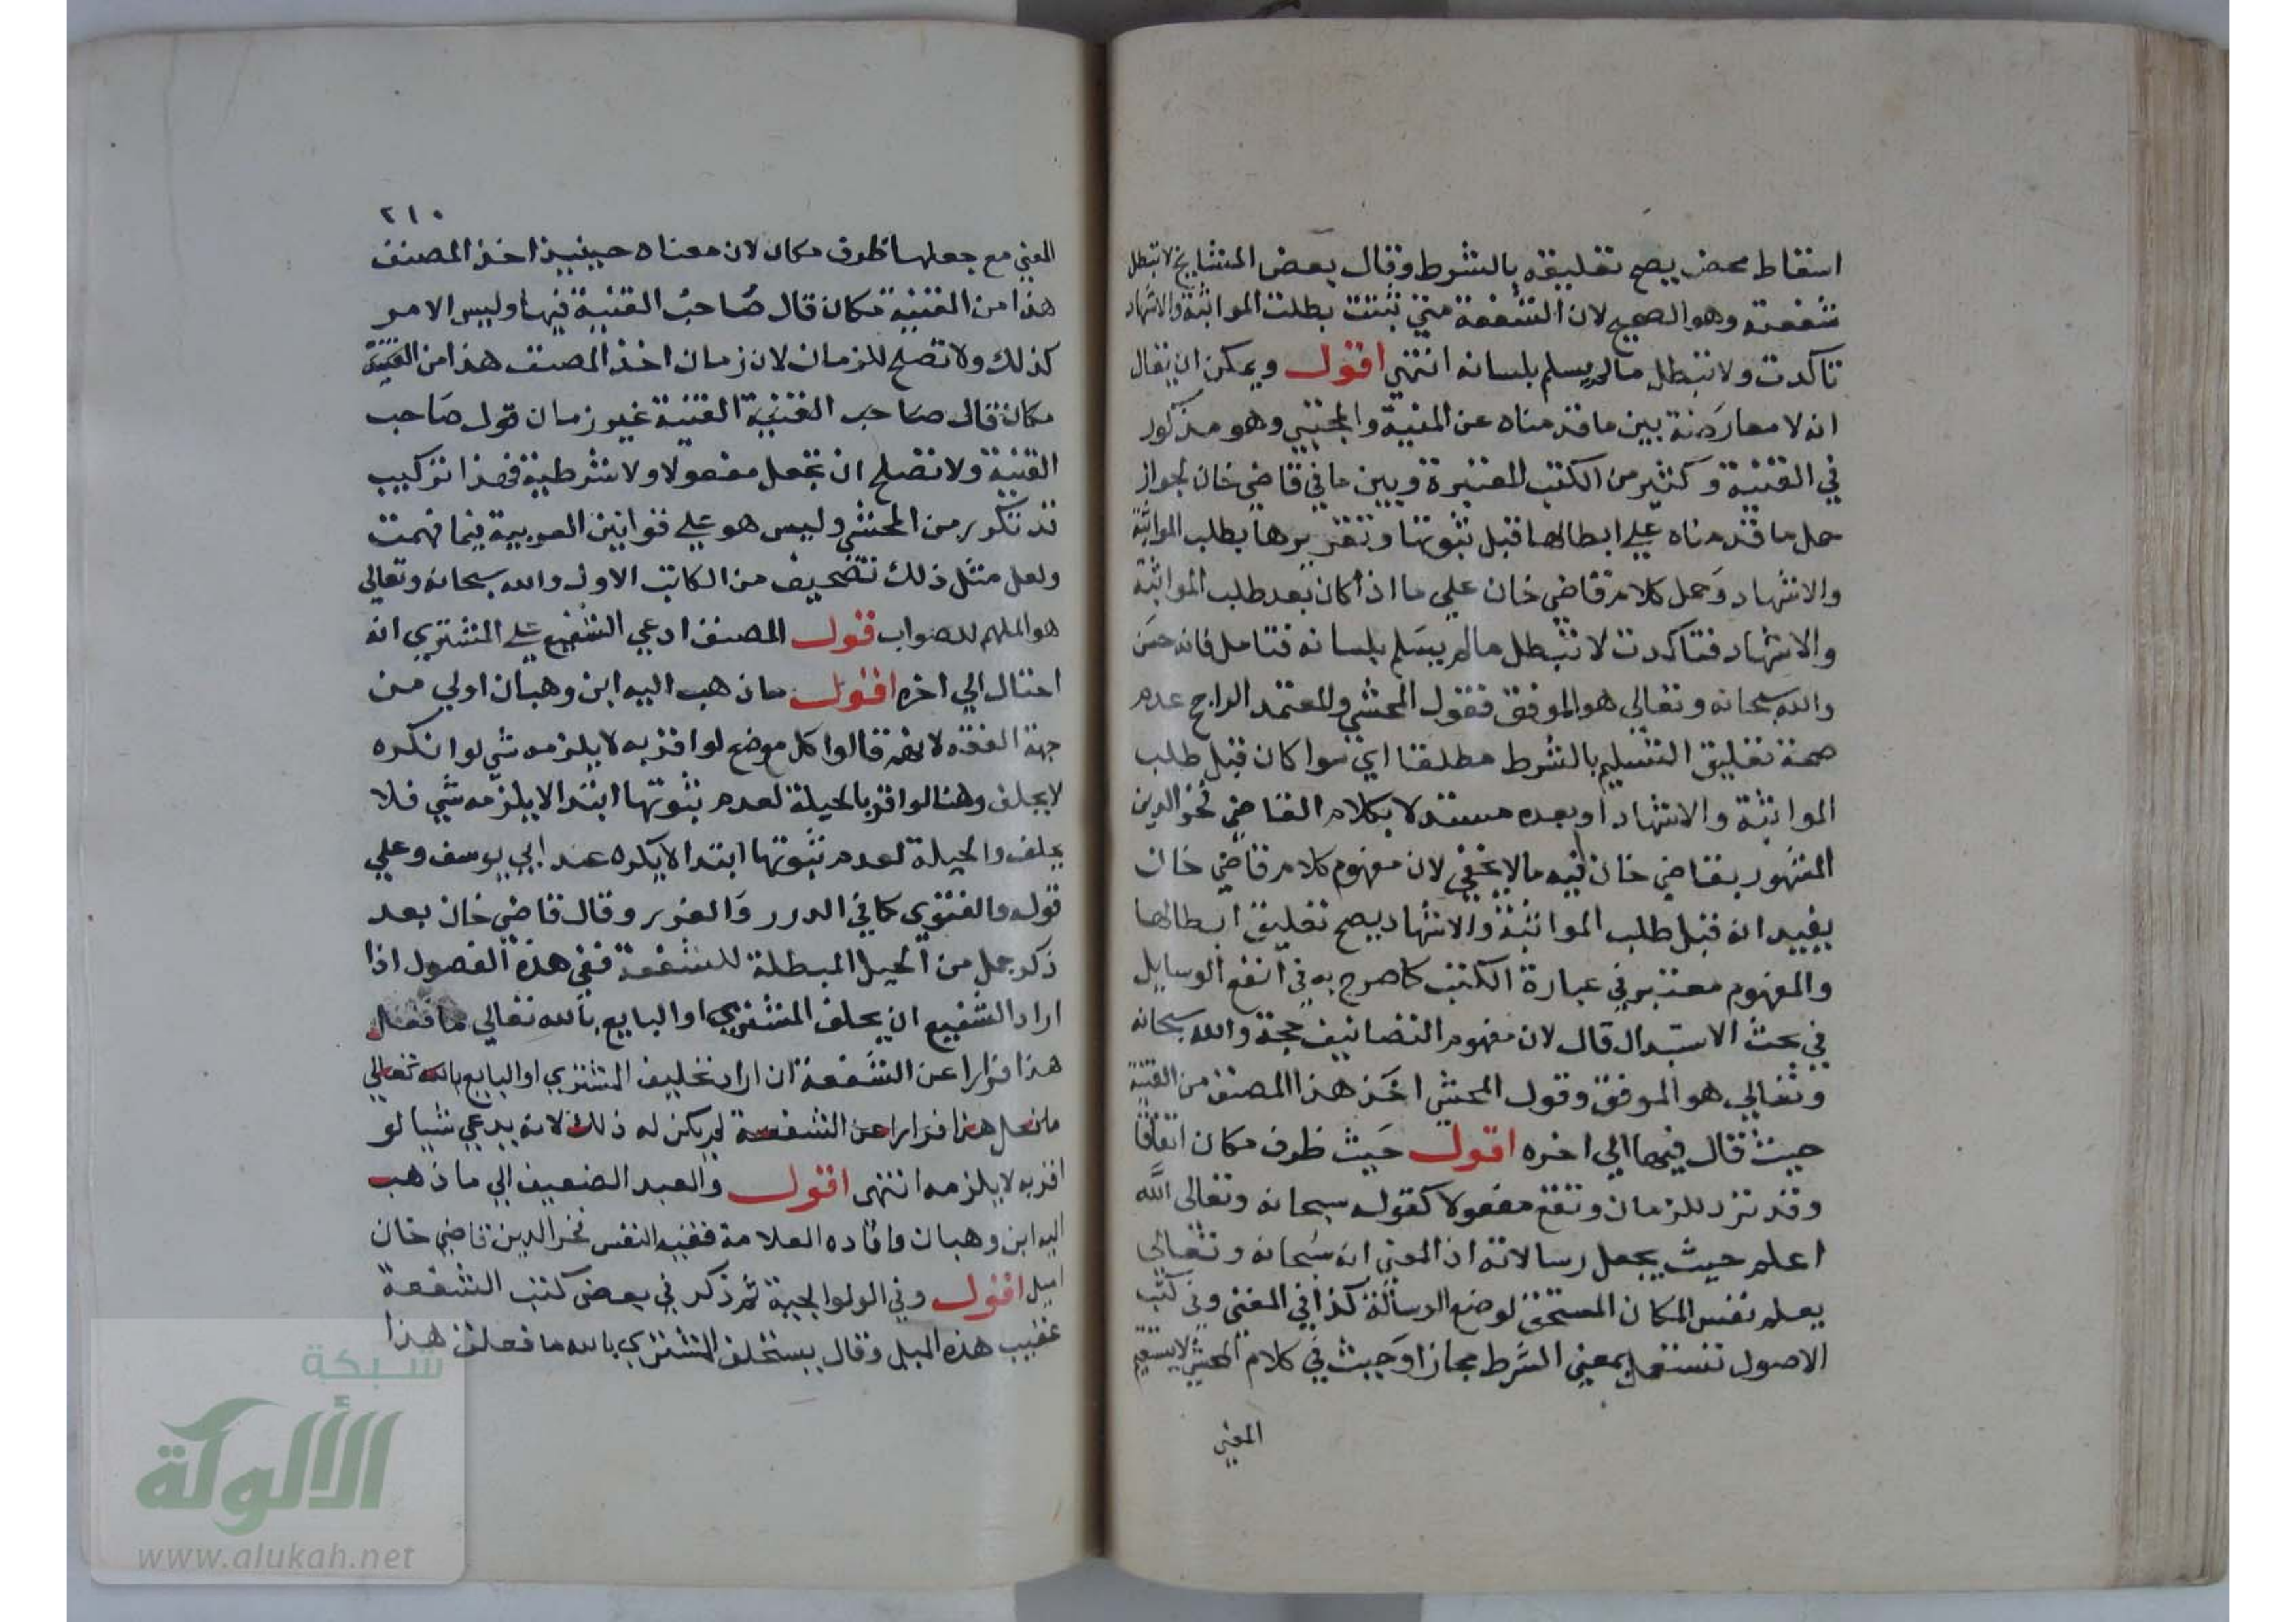 اسقاط محض يصح تعليقه بالشرط وقال بعض المشايخ لا تبطل
شفعته وهو الصحيح لان الشفعة متى ثبتت بطلت المواثبة والاشهاد
تاكدت ولا تبطل مالم يسلم بلسانه انتهى اقول ويمكن ان يقال
انه لا معارضة بين ما قدمناه عن المنية والمجتبى وهو مذكور
في القنية وكثير من الكتب المعتبرة وبين ما في قاضي خان لجواز
حمل ما قدمناه على ابطالها قبل ثبوتها وتقريرها بطلب المواثبة
والاشهاد وحمل كلام قاضي خان على ما اذا كان بعد طلب المواثبة
والاشهاد فتاكدت لا تبطل مالم يسلم بلسانه فتامل فانه حسن
والله سبحانه وتعالى هو الموفق فقول المحشي والمعتمد الراجح عدم
صحة تعليق التسليم بالشرط مطلقا اي سوا كان قبل طلب
المواثبة والاشهاد او بعده مستدلا بكلام القاضي فخر الدين
المشهور بقاضي خان فيه مالا يخفى لان مفهوم كلام قاضي خان
يفيد انه قبل طلب المواثبة والاشهاد يصح تعليق ابطالها
والمفهوم معتبر في عبارة الكتب كما صرح به في انفع الوسايل
في بحث الاستبدال قال لان مفهوم التصانيف حجة والله سبحانه
وتعالى هو الموفق وقول المحشي اخذ هذا المصنف من القنية
حيث قال فيها الى اخره اقول حيث ظرف مكان اتفاقا
وقد ترد للزمان وتقع مفعولا كقوله سبحانه وتعالى الله
اعلم حيث يجعل رسالاته اذ المعنى انه سبحانه وتعالى
يعلم نفس المكان المستحق لوضع الرسالة كذا في المغنى وفي كتب
الاصول تستعمل بمعنى الشرط مجازا وحيث في كلام المحشي لا يستقيم
المعنى
٢١٠
المعنى مع جعلها ظرف مكان لان معناه حينيذ اخذ المصنف
هذا من القنية مكان قال صاحب القنية فيها وليس الامر
كذلك ولا تصلح للزمان لان زمان اخذ المصنف هذا من القنية
مكان قال صاحب القنية القنية غير زمان قول صاحب
القنية ولا تصلح ان تجعل مفعولا ولا شرطية فهذا تركيب
قد تكرر من المحشي وليس هو على قوانين العربية فيما فهمت
ولعل مثل ذلك تصحيف من الكاتب الاول والله سبحانه وتعالى
هو الملهم للصواب قول المصنف ادعى الشفيع على المشتري انه
احتال الى اخره اقول ما ذهب اليه ابن وهبان اولى من
جهة الفقه لانهم قالوا كل موضع لو اقر به لا يلزمه شي لو انكره
لا يحلف وهنا لو اقر بالحيلة لعدم ثبوتها ابتدا لا يلزمه شي فلا
يحلف والحيلة لعدم ثبوتها ابتدا لا يكره عند ابي يوسف وعلى
قوله الفتوى كما في الدرر والغرر وقال قاضي خان بعد
ذكر جمل من الحيل المبطلة للشفعة ففي هذه الفصول اذا
اراد الشفيع ان يحلف المشتري او البايع بالله تعالى ما فعل
هذا فرارا عن الشفعة ان اراد تحليف المشتري او البايع بالله تعالى
ما فعل هذا فرارا عن الشفعة لم يكن له ذلك لانه يدعي شيا لو
اقر به لا يلزمه انتهى اقول والعبد الضعيف الى ما ذهب
اليه ابن وهبان وافاده العلامة فقيه النفس فخر الدين قاضي خان
اميل اقول وفي الولوالجية ثم ذكر في بعض كتب الشفعة
عقيب هذه المسايل وقال يستحلف المشتري بالله ما فعلت هذا
شبكة
الألوكة
www.alukah.net